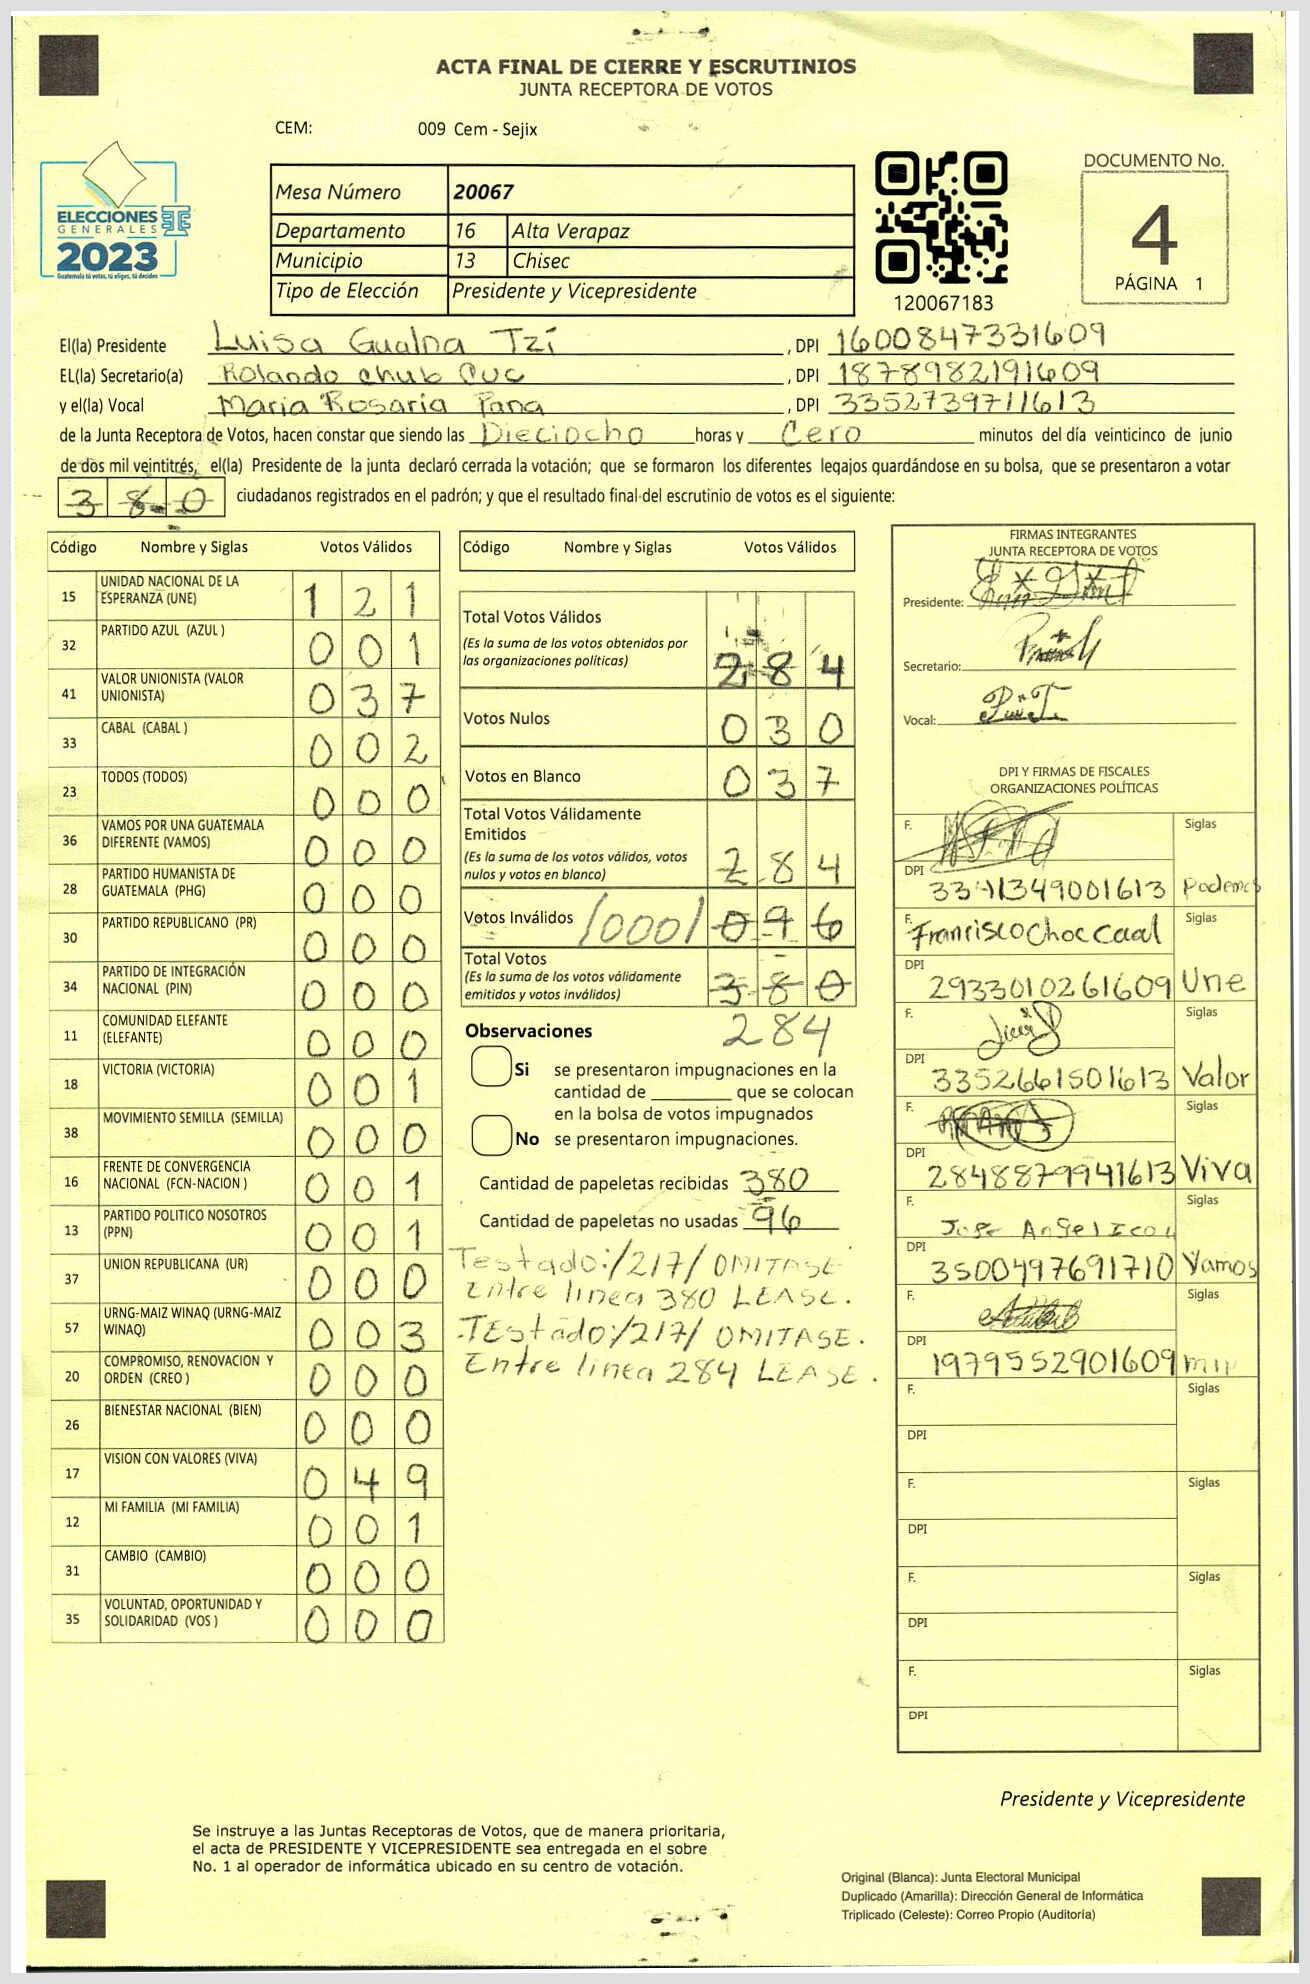 ACTA FINAL DE CIERRE Y ESCRUTINIOS
JUNTA RECEPTORA DE VOTOS
CEM: 009 Cem - Sejix
ELECCIONES
GENERALES
2023
Guatemala tú votas, tú eliges, tú decides
Mesa Número 20067
Departamento 16 Alta Verapaz
Municipio 13 Chisec
Tipo de Elección Presidente y Vicepresidente
120067183
DOCUMENTO No.
4
PÁGINA 1
El(la) Presidente Luisa Gualna Tzí , DPI 1600847331609
EL(la) Secretario(a) Rolando chub Cuc , DPI 1878982191609
y el(la) Vocal Maria Rosaria Pana , DPI 3352739711613
de la Junta Receptora de Votos, hacen constar que siendo las Dieciocho horas y Cero minutos del día veinticinco de junio
de dos mil veintitrés, el(la) Presidente de la junta declaró cerrada la votación; que se formaron los diferentes legajos guardándose en su bolsa, que se presentaron a votar
380 ciudadanos registrados en el padrón; y que el resultado final del escrutinio de votos es el siguiente:
Código Nombre y Siglas Votos Válidos
15 UNIDAD NACIONAL DE LA ESPERANZA (UNE) 1 2 1
32 PARTIDO AZUL (AZUL ) 0 0 1
41 VALOR UNIONISTA (VALOR UNIONISTA) 0 3 7
33 CABAL (CABAL ) 0 0 2
23 TODOS (TODOS) 0 0 0
36 VAMOS POR UNA GUATEMALA DIFERENTE (VAMOS) 0 0 0
28 PARTIDO HUMANISTA DE GUATEMALA (PHG) 0 0 0
30 PARTIDO REPUBLICANO (PR) 0 0 0
34 PARTIDO DE INTEGRACIÓN NACIONAL (PIN) 0 0 0
11 COMUNIDAD ELEFANTE (ELEFANTE) 0 0 0
18 VICTORIA (VICTORIA) 0 0 1
38 MOVIMIENTO SEMILLA (SEMILLA) 0 0 0
16 FRENTE DE CONVERGENCIA NACIONAL (FCN-NACION ) 0 0 1
13 PARTIDO POLITICO NOSOTROS (PPN) 0 0 1
37 UNION REPUBLICANA (UR) 0 0 0
57 URNG-MAIZ WINAQ (URNG-MAIZ WINAQ) 0 0 3
20 COMPROMISO, RENOVACION Y ORDEN (CREO ) 0 0 0
26 BIENESTAR NACIONAL (BIEN) 0 0 0
17 VISION CON VALORES (VIVA) 0 4 9
12 MI FAMILIA (MI FAMILIA) 0 0 1
31 CAMBIO (CAMBIO) 0 0 0
35 VOLUNTAD, OPORTUNIDAD Y SOLIDARIDAD (VOS ) 0 0 0
Código Nombre y Siglas Votos Válidos
Total Votos Válidos
(Es la suma de los votos obtenidos por
las organizaciones políticas) 2 8 4
Votos Nulos 0 3 0
Votos en Blanco 0 3 7
Total Votos Válidamente
Emitidos
(Es la suma de los votos válidos, votos
nulos y votos en blanco) 2 8 4
Votos Inválidos /000/ 0 9 6
Total Votos
(Es la suma de los votos válidamente
emitidos y votos inválidos) 3 8 0
Observaciones 284
Si se presentaron impugnaciones en la
cantidad de ________ que se colocan
en la bolsa de votos impugnados
No se presentaron impugnaciones.
Cantidad de papeletas recibidas 380
Cantidad de papeletas no usadas 96
Testado:/217/ OMITASE
Entre linea 380 LEASE.
-TEstado:/217/ OMITASE.
Entre linea 284 LEASE.
FIRMAS INTEGRANTES
JUNTA RECEPTORA DE VOTOS
Presidente:
Secretario:
Vocal:
DPI Y FIRMAS DE FISCALES
ORGANIZACIONES POLÍTICAS
F. Siglas
DPI 3341349001613 Podemos
F. Francisco Choc Caal Siglas
DPI 2933010261609 Une
F. Siglas
DPI 3352661501613 Valor
F. Siglas
DPI 2848879941613 Viva
F. Jose Angel Icoy Siglas
DPI 3500497691710 Vamos
F. Siglas
DPI 1979552901609
F. Siglas
DPI
F. Siglas
DPI
F. Siglas
DPI
F. Siglas
DPI
Presidente y Vicepresidente
Se instruye a las Juntas Receptoras de Votos, que de manera prioritaria,
el acta de PRESIDENTE Y VICEPRESIDENTE sea entregada en el sobre
No. 1 al operador de informática ubicado en su centro de votación.
Original (Blanca): Junta Electoral Municipal
Duplicado (Amarilla): Dirección General de Informática
Triplicado (Celeste): Correo Propio (Auditoría)